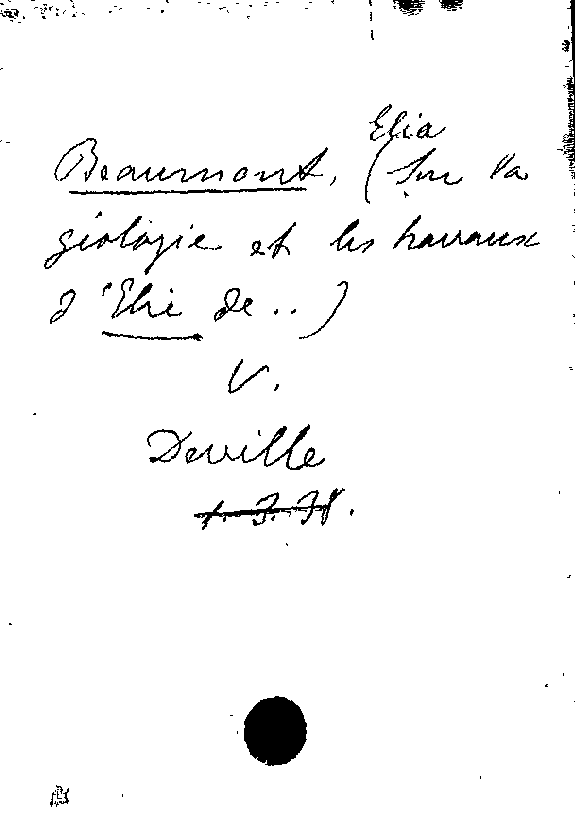 Elia
Beaumont, (Sur la
géologie et les travaux
d'Elie de..)
V.
Deville